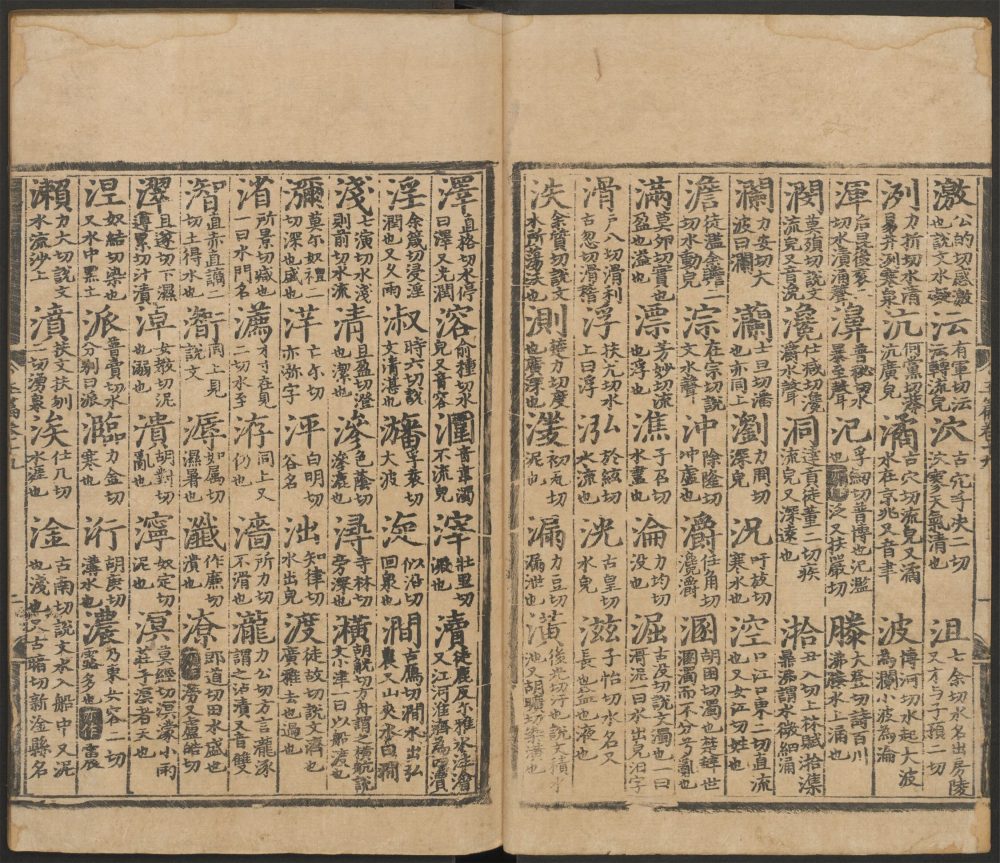 激公的切感激也說文水礙沄有軍切沄沄轉流皃泬古穴乎決二切泬寥天氣清也沮七余切水名出房陵又才与子預二切
洌力折切水清易井洌寒泉沆何黨切莽沆廣皃潏古穴切流皃又潏水在京兆又音聿波博河切水起大波為瀾小波為淪
渾后昆後袞二切水濆涌聲濞普秘切水暴至聲氾孚劒切普博也氾濫也泛又扶嚴切滕大登切詩百川沸滕水上涌也
潣莫殞切說文流皃又音浼瀺仕咸切瀺灂水聲洞達貢徒董二切疾流皃又深遠也湁丑入切上林賦湁潗鼎沸謂水微細涌
瀾力安切大波曰瀾灡力旦切潘也亦同上瀏力周切深皃況吁放切寒水也涳口江口東二切直流也又女江切姓也
澹徒濫余瞻二切水動皃淙在宗切說文水聲沖除隆切沖虛也灂仕角切瀺灂溷胡困切濁也楚辭世溷濁而不分兮亂也
滿莫卵切實也盈也溢也漂芳妙切流也浮也潐子召切水盡也淪力均切沒也淈古沒切說文濁也一曰滑泥曰水出皃汩字
滑戶八切滑利也古忽切滑稽浮扶尤切水上曰浮泓於紘切水深也洸古皇切水流也滋子怡切水名又長也益也液也
泆余質切說文水所蕩泆也測楚力切度也廣深也初丸切泥也漏力豆切漏泄也潢後光切汙也說文積水池又胡曠切染潢也
澤直格切水停曰澤又光潤溶俞種切水皃又音容音韋濁不流皃滓壯里切澱也瀆徒鹿反爾雅水注澮又江河淮濟為四瀆
淫余箴切浸淫潤也又久雨淑時六切說文清湛也孚袁切大波漩似沿切回泉也澗古鴈切澗水出弘農又山夾水曰澗
淺七演切水淺則前切水流清且盈切澄也潔也滲色蔭切滲漉也潯寺林切旁深也橫胡觥切方舟謂之橫航說文小津一曰以船渡也
瀰莫尔奴禮二切深也盛也亡尔切亦瀰字泙白明切谷名泏知律切水出皃渡徒故切說文濟也廣雅去也過也
渻所景切減也一曰水門名瀳才寸在見二切水至洊同上又仍也濇所力切不滑也瀧力公切方言瀧涿謂之沾漬又音雙
直亦直謫二切土得水也同上見說文溽如屬切濕暑也瀸作廉切漬也潦郎道切雨水盛也澇又盧皓切
濢且遂切下濕遵累切汁漬淖女教切泥也溺也潰胡對切亂也濘奴定切泥也溟莫經切溟濛小雨莊子溟者天也
涅奴結切染也又水中黑土派普賣切水分別曰派力金切寒也洐胡庚切溝水也濃乃東女容二切露多也
瀨力大切說文水流沙上濆扶文扶刎二切涌泉涘仕几切水涯也淦古南切說文水入船中又泥也淺也又古暗切新淦縣名